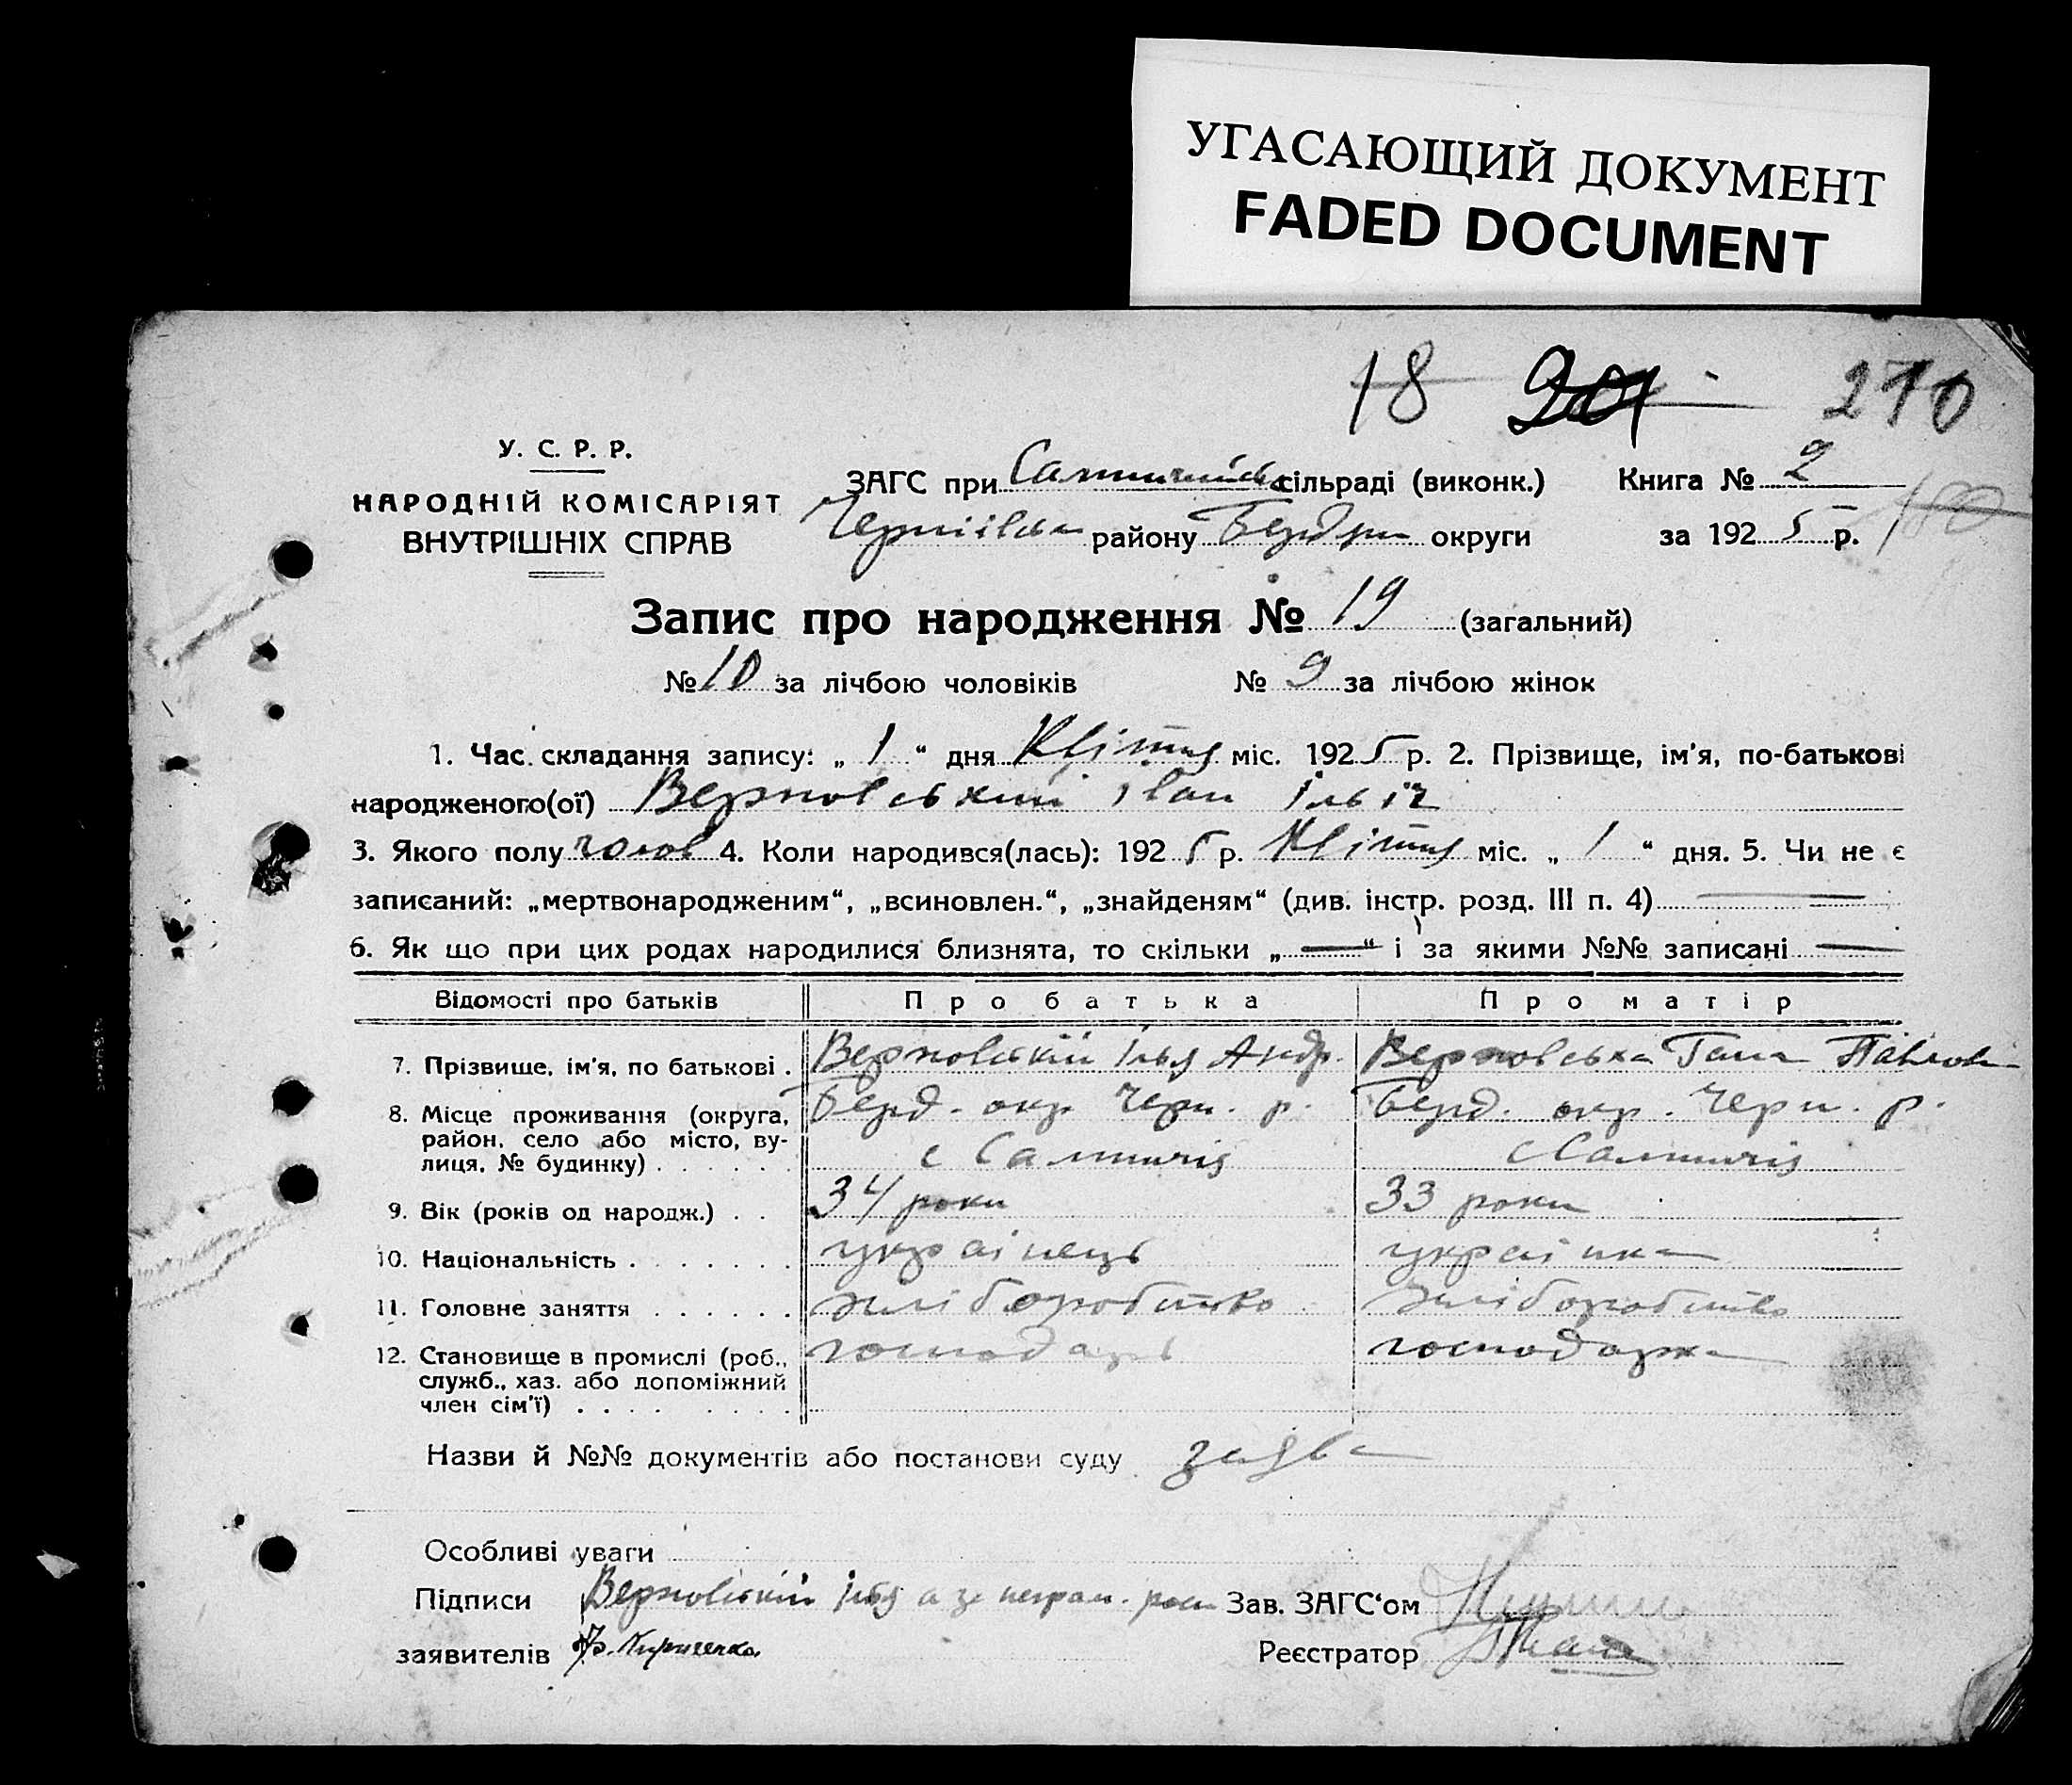 УГАСАЮЩИЙ ДОКУМЕНТ
FADED DOCUMENT
18 201 210
У. С. Р. Р.
НАРОДНІЙ КОМІСАРІЯТ
ВНУТРІШНІХ СПРАВ
ЗАГС при Салтичійськ сільраді (виконк.) Книга № 2
Чернігівськ району Бердян округи за 1925 р. 180
Запис про народження № 19 (загальний)
№ 10 за лічбою чоловіків № 9 за лічбою жінок
1. Час складання запису: „ 1 “ дня Квітня міс. 1925 р. 2. Прізвище, ім'я, по-батькові
народженого(ої) Верховський Іван Ільіч
3. Якого полу чолов 4. Коли народився(лась): 1925 р. Квітня міс. „ 1 “ дня. 5. Чи не є
записаний: „мертвонародженим“, „всиновлен.“, „знайденям“ (див. інстр. розд. III п. 4) —
6. Як що при цих родах народилися близнята, то скільки „ — “ і за якими №№ записані —
Відомості про батьків Про батька Про матір
7. Прізвище, ім'я, по батькові . Верховській Ілья Андр. Верховська Гана Павлов
8. Місце проживання (округа, Берд. окр Черн. р. Берд. окр. Черн. р.
район, село або місто, ву-
лиця, № будинку) . . . . . . с Салтичія с Салтичія
9. Вік (років од народж.) . . 34 роки 33 роки
10. Національність . . . . . . . українець українка
11. Головне заняття . . . . . . хліборобство хліборобство
12. Становище в промислі (роб., господарь господарка
служб., хаз. або допоміжний
член сім'ї) . . . . . . . .
Назви й №№ документів або постанови суду заява
Особливі уваги
Підписи Верховській Ілья а за неграм. росп Зав. ЗАГС‘ом
заявителів Кириченко Реєстратор